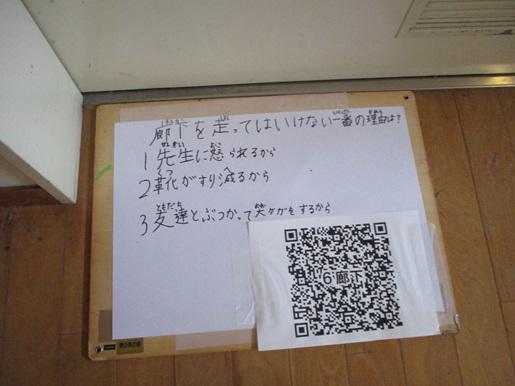 廊下を走ってはいけない一番の理由は?
1先生に怒られるから
2靴がすり減るから
3友達とぶつかって笑々がをするから
6廊下